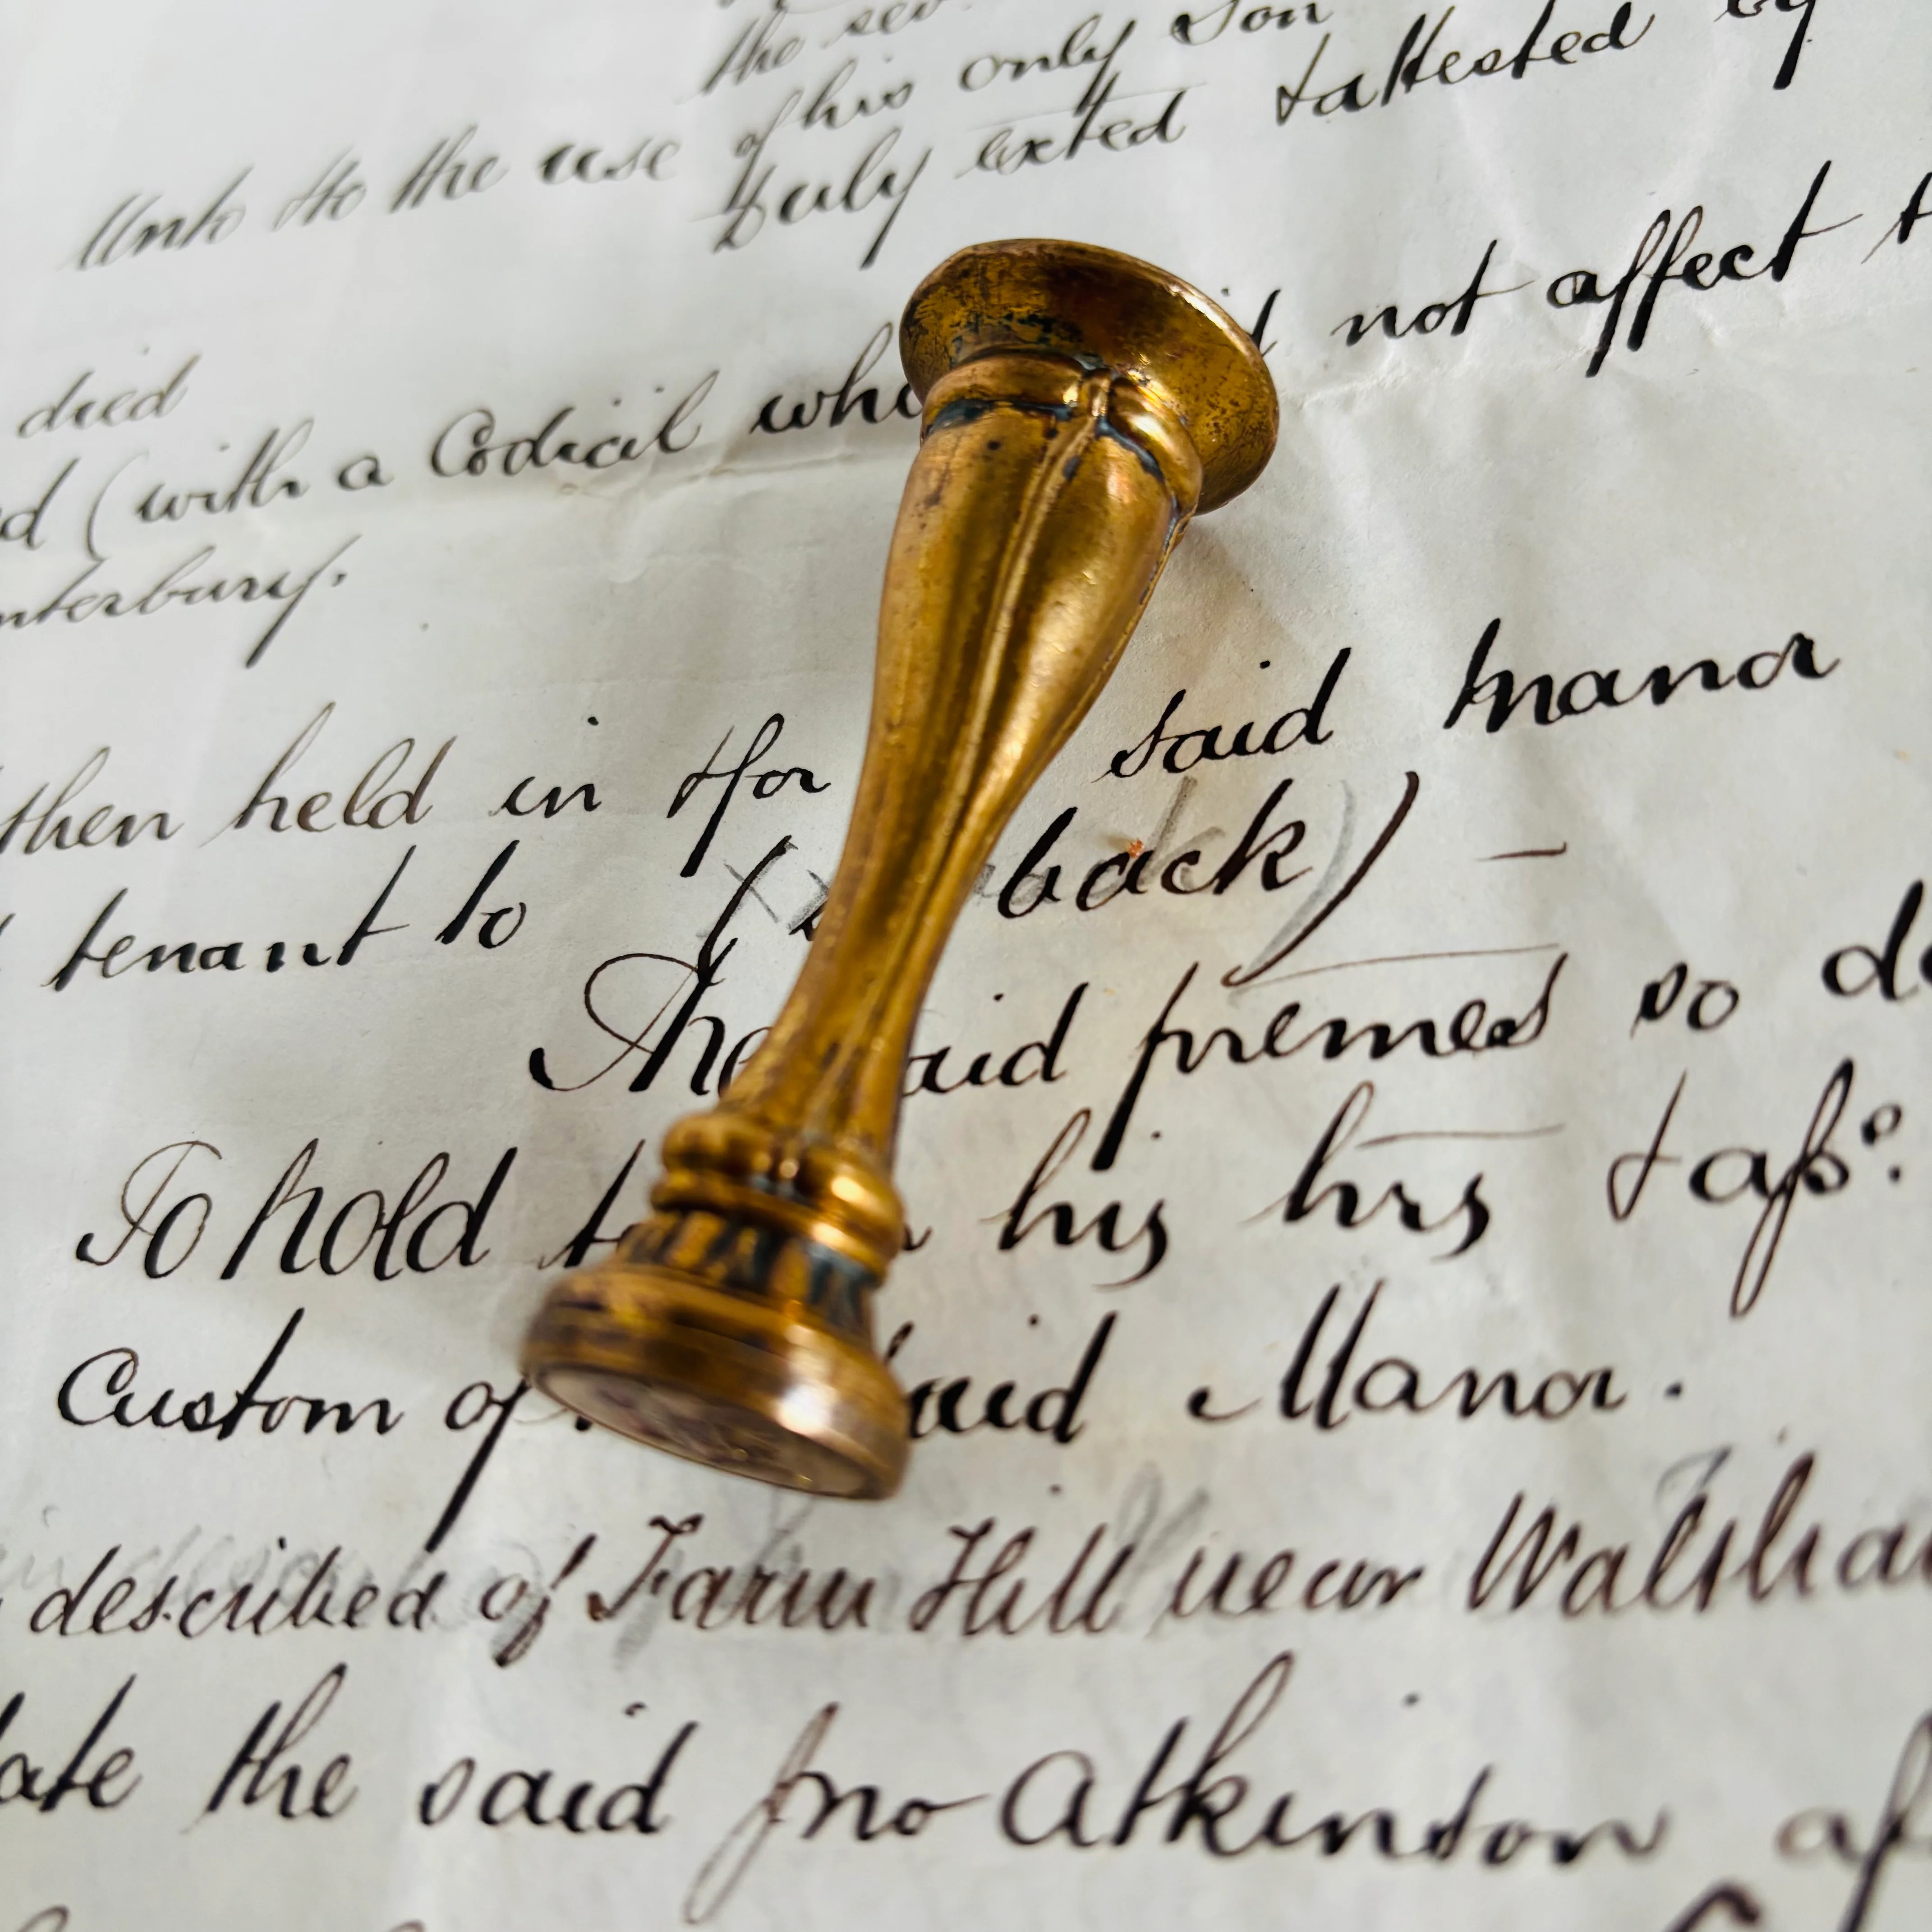 the
of his only son
Unto & to the use
Duly exted & attested by
died
(with a Codicil not affect
nterbury.
then held in & for said manor
tenant to ( back) –
The said premes so
To hold his hrs & aſs:
Custom of said Manor.
described of Farm Hill near Walsha
ate the said Jno Atkinson